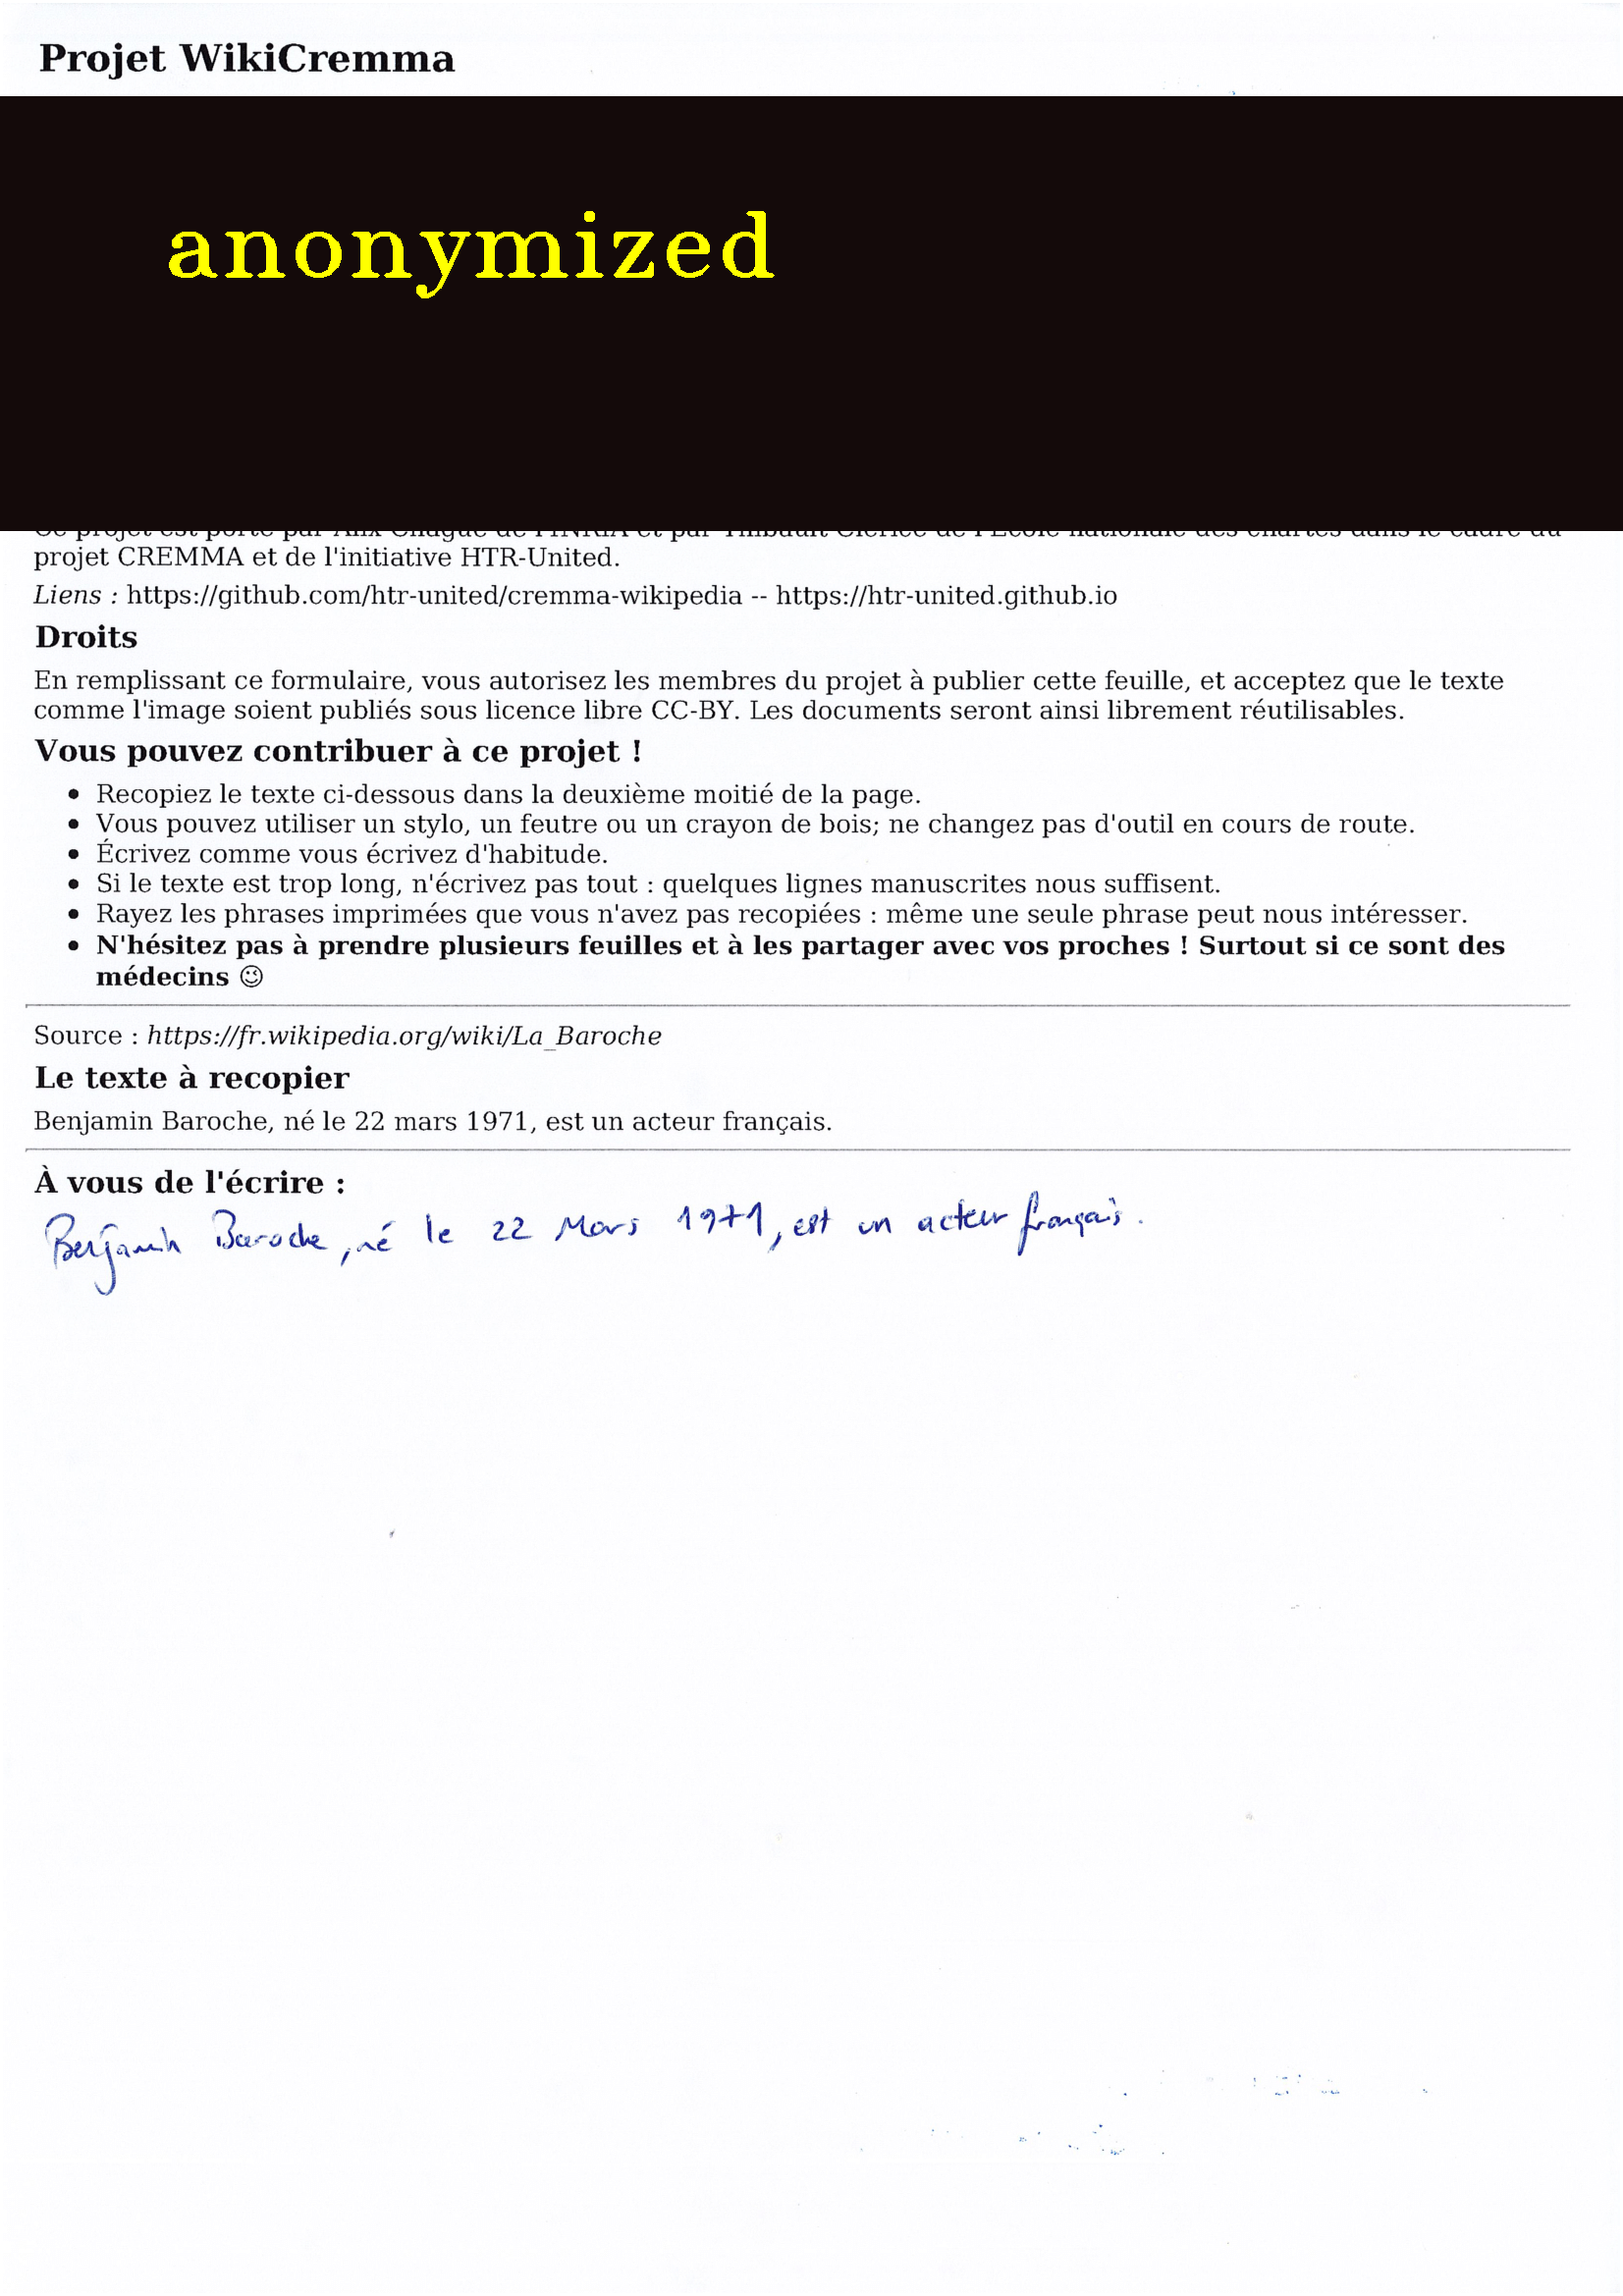 Projet WikiCremma
anonymized
Ce projet est porté par Alix Chagué de l'INRIA et par Thibault Clérice de l'École nationale des chartes dans le cadre du
projet CREMMA et de l'initiative HTR-United.
Liens : https://github.com/htr-united/cremma-wikipedia -- https://htr-united.github.io
Droits
En remplissant ce formulaire, vous autorisez les membres du projet à publier cette feuille, et acceptez que le texte
comme l'image soient publiés sous licence libre CC-BY. Les documents seront ainsi librement réutilisables.
Vous pouvez contribuer à ce projet !
• Recopiez le texte ci-dessous dans la deuxième moitié de la page.
• Vous pouvez utiliser un stylo, un feutre ou un crayon de bois; ne changez pas d'outil en cours de route.
• Écrivez comme vous écrivez d'habitude.
• Si le texte est trop long, n'écrivez pas tout : quelques lignes manuscrites nous suffisent.
• Rayez les phrases imprimées que vous n'avez pas recopiées : même une seule phrase peut nous intéresser.
• N'hésitez pas à prendre plusieurs feuilles et à les partager avec vos proches ! Surtout si ce sont des
médecins ☺
Source : https://fr.wikipedia.org/wiki/La_Baroche
Le texte à recopier
Benjamin Baroche, né le 22 mars 1971, est un acteur français.
À vous de l'écrire :
Benjamin Baroche, né le 22 Mars 1971, est un acteur français.